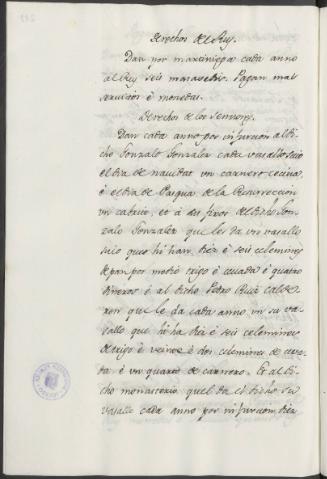 Derechos del Rey.
Dan por martiniega cada anno
al Rey seis maravedis. Pagan mas
servicios è monedas.
Derechos de los Sennores.
Dan cada anno por infurcion al di-
cho Gonzalo Gonzalez cada vasallo suio
el dia de navidat un carnero cecina,
è el dia de Pasqua de la Resurreccion
un cabrito, et à dos fixos del dicho Gon-
zalo Gonzalez que les da un vasallo
suio que hi han, diez è seis celemines
de pan por medio trigo è cevada è quatro
dineros è al dicho Pedro Ruiz calde-
ron que le da cada anno un su va-
sallo que hi ha diez è seis celemines
de trigo è veinte è dos celemines de ceva-
da è un quarto de carnero. Et al di-
cho monasterio quel da el dicho su
vasallo cada anno por infurcion, diez